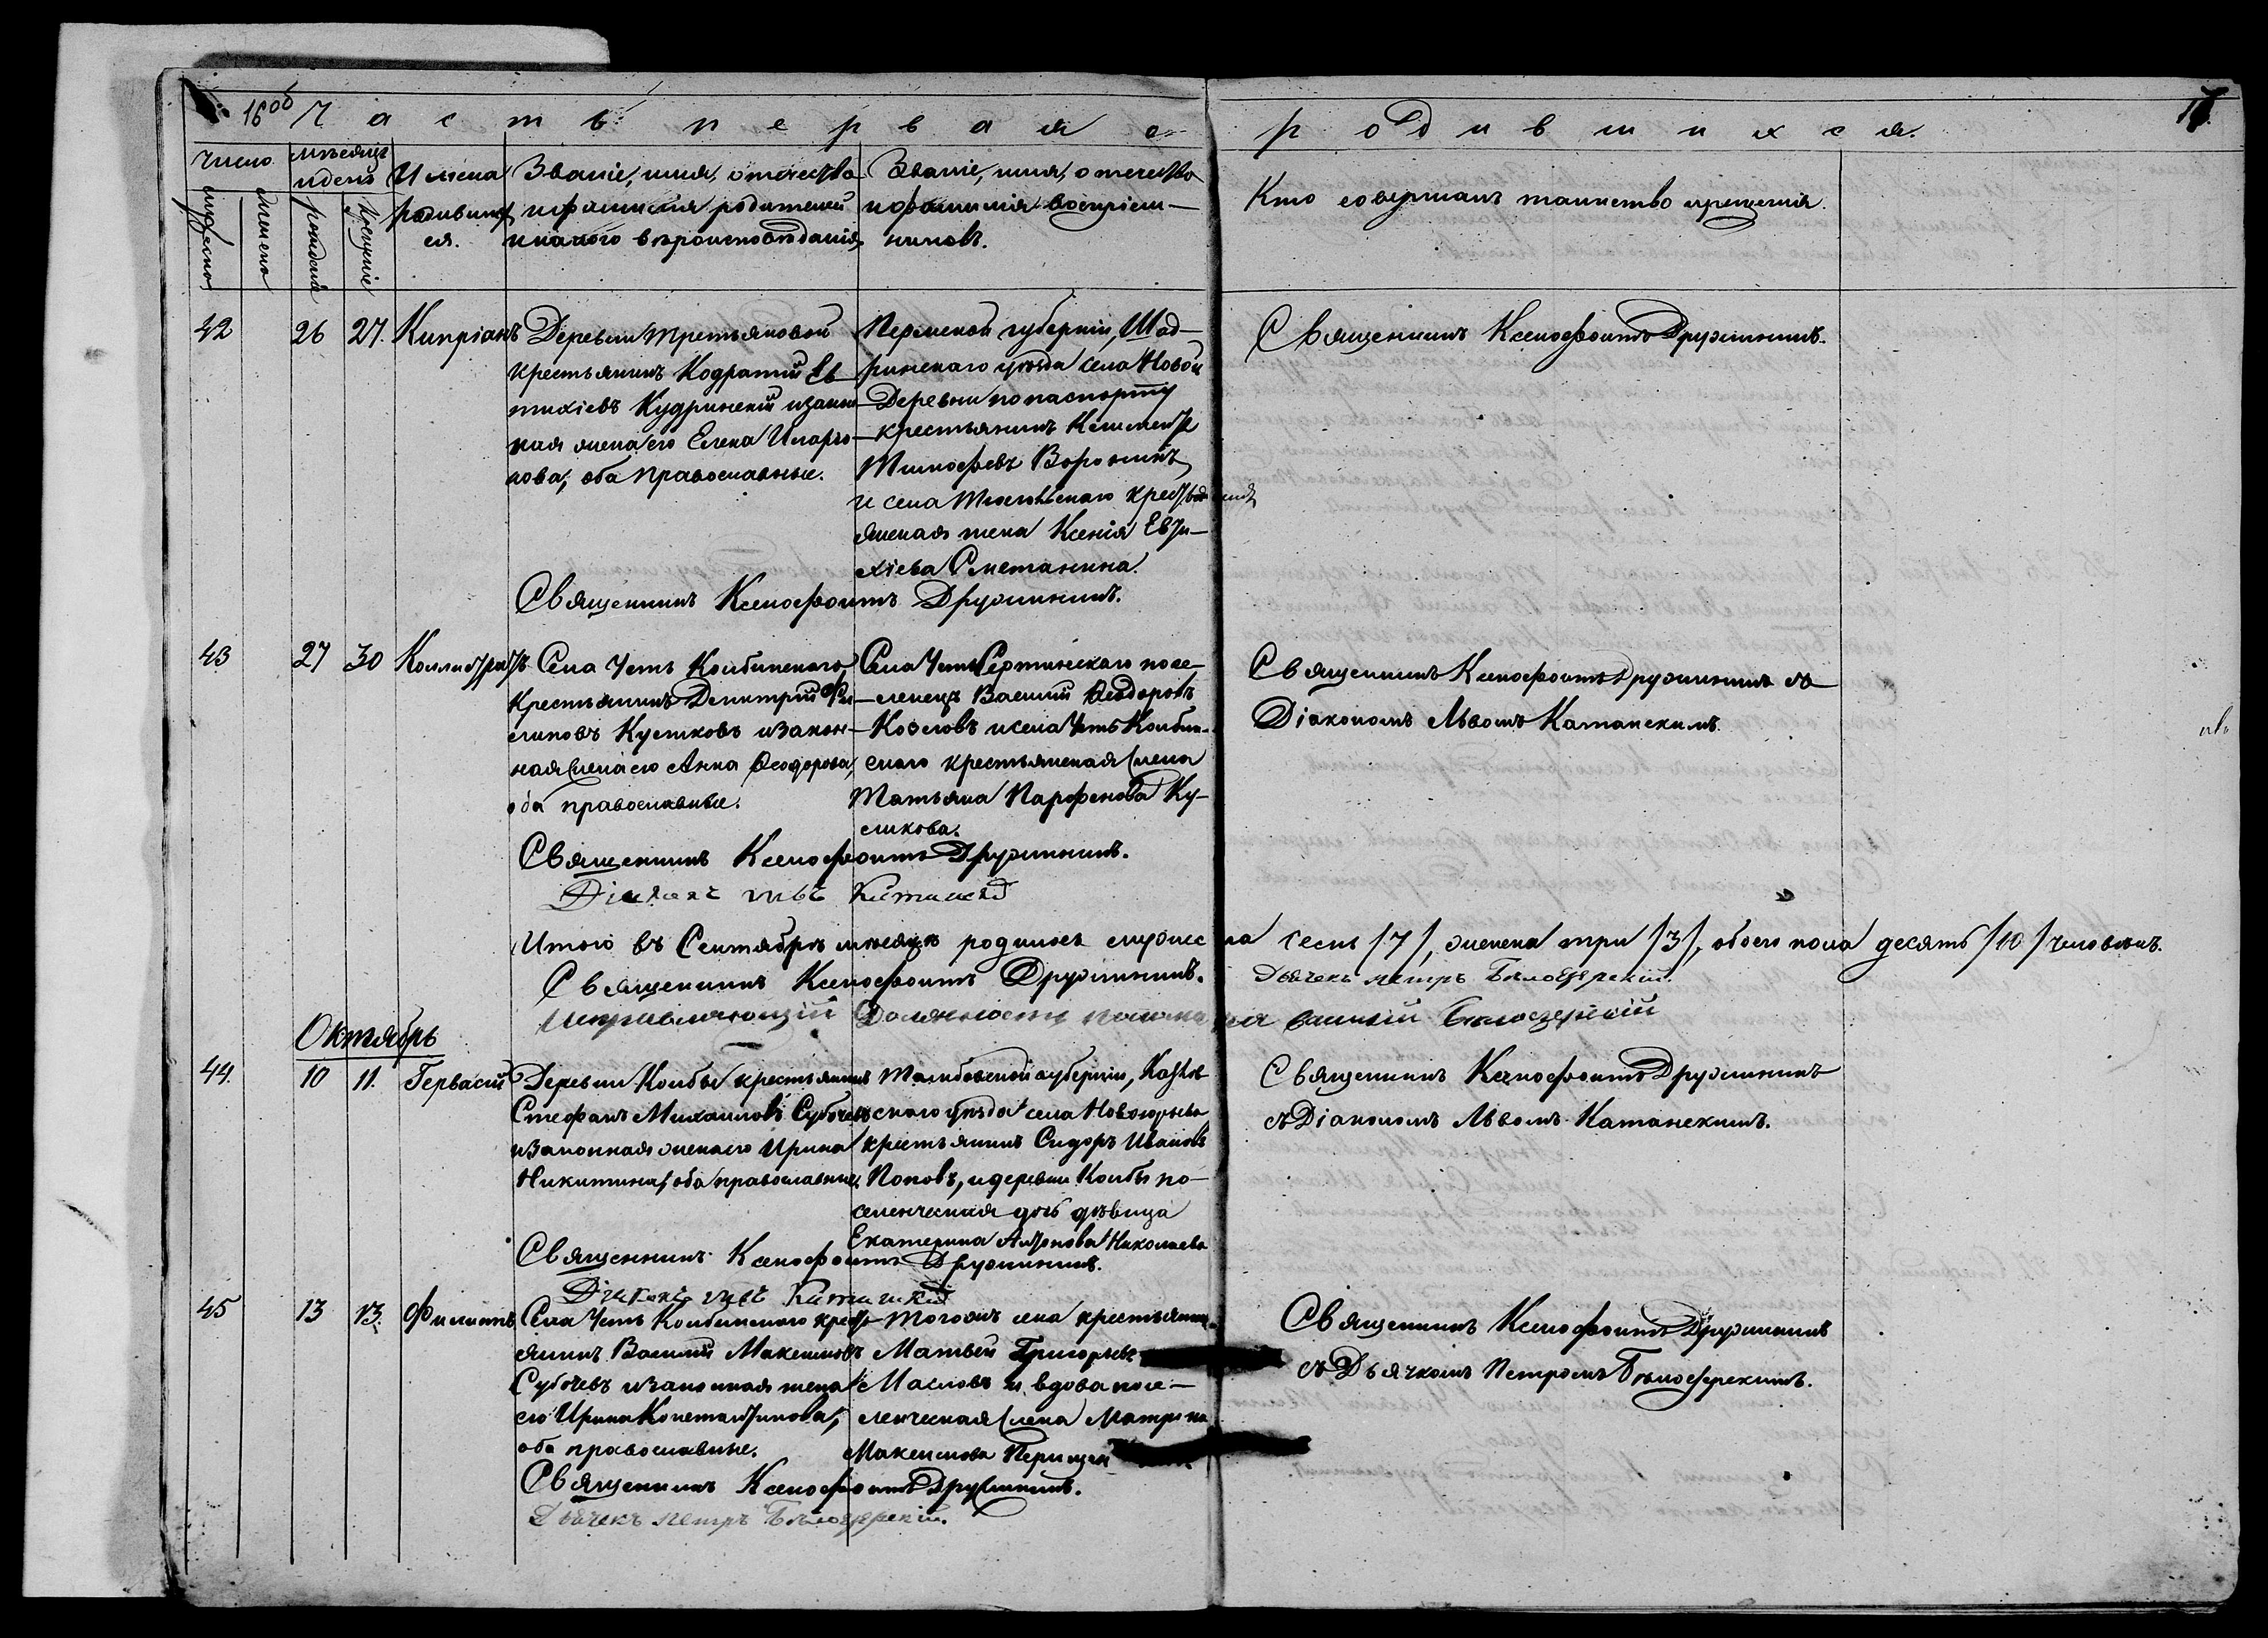 16об Часть первая о родившихся. 17
Число Мѣсяцъ и день Имена Званіе, имя, отчество Званіе, имя, отчество
родивших и фамилія родителей и фамилія воспріем-
ся. и какого вѣроисповѣданія никовъ.
мужеска женска рожденія крещенія
Кто совершалъ таинство крещенія.
42 26 27. Кипріанъ
Деревни Третьяковой
крестьянинъ Кодратій Ев
тихіевъ Кудринскій и закон
ная жена его Елена Иларіо-
нова, оба православные.
Пермской губерніи, Шад-
ринскаго уѣзда села Новой
Деревни по паспорту
крестьянинъ Климентъ
Тимофеевъ Воронинъ
и села крестьян
янская жена Ксенія Евти-
хіева Сметанина.
Священникъ Ксенофонтъ Дружининъ.
Священникъ Ксенофонтъ Дружининъ.
43 27 30 Каллистратъ
Села Четь Колбинскаго
крестьянинъ Димитрій Фи
липовъ Кусковъ и закон-
ная жена его Анна Ѳеодорова,
оба православные.
Села Четь Сертинскаго посе-
ленецъ Василій Ѳеодоровъ
Козловъ и села Четь Колбин-
скаго крестьянская жена
Татьяна Парфенова Ку-
скова.
Священникъ Ксенофонтъ Дружининъ съ
Діакономъ Львомъ Катанскимъ.
Священникъ Ксенофонтъ Дружининъ.
Діаконъ Левъ Катанскій
Итого въ Сентябрѣ мѣсяцѣ родилось мужеска семь /7/, женска три /3/, обоего пола десять /10/ человѣкъ.
Священникъ Ксенофонтъ Дружининъ. Дьячекъ Петръ Бѣлозерскій.
Исправляющій Должность пономаря Василій Бѣлозерскій
Октябрь
44. 10 11. Гервасій
Деревни Колбы крестьянинъ
Стефанъ Михаиловъ Субочевъ
и законная жена его Ирина
Никитина, оба православные.
Тамбовской губерніи, Козлов
скаго уѣзда села Новоюрьева
крестьянинъ Сидоръ Ивановъ
Поповъ, и деревни Колбы по-
селенческая дочь дѣвица
Екатерина Антонова Николаева
Священникъ Ксенофонтъ Дружининъ
съ Діакономъ Львомъ Катанскимъ.
Священникъ Ксенофонтъ Дружининъ.
Діаконъ Левъ Катанскій
45 13 13. Филиппъ
Села Четь Колбинскаго крест
янинъ Василій Максимовъ
Субочевъ и законная жена
его Ирина Константинова,
оба православные.
Тогожъ села крестьянинъ
Матвей Григорьевъ
Масловъ и вдова посе-
ленческая жена Матрона
Максимова
Священникъ Ксенофонтъ Дружининъ
съ Дьячкомъ Петромъ Бѣлозерскимъ.
Священникъ Ксенофонтъ Дружининъ.
Дьячекъ Петръ Бѣлозерскій.